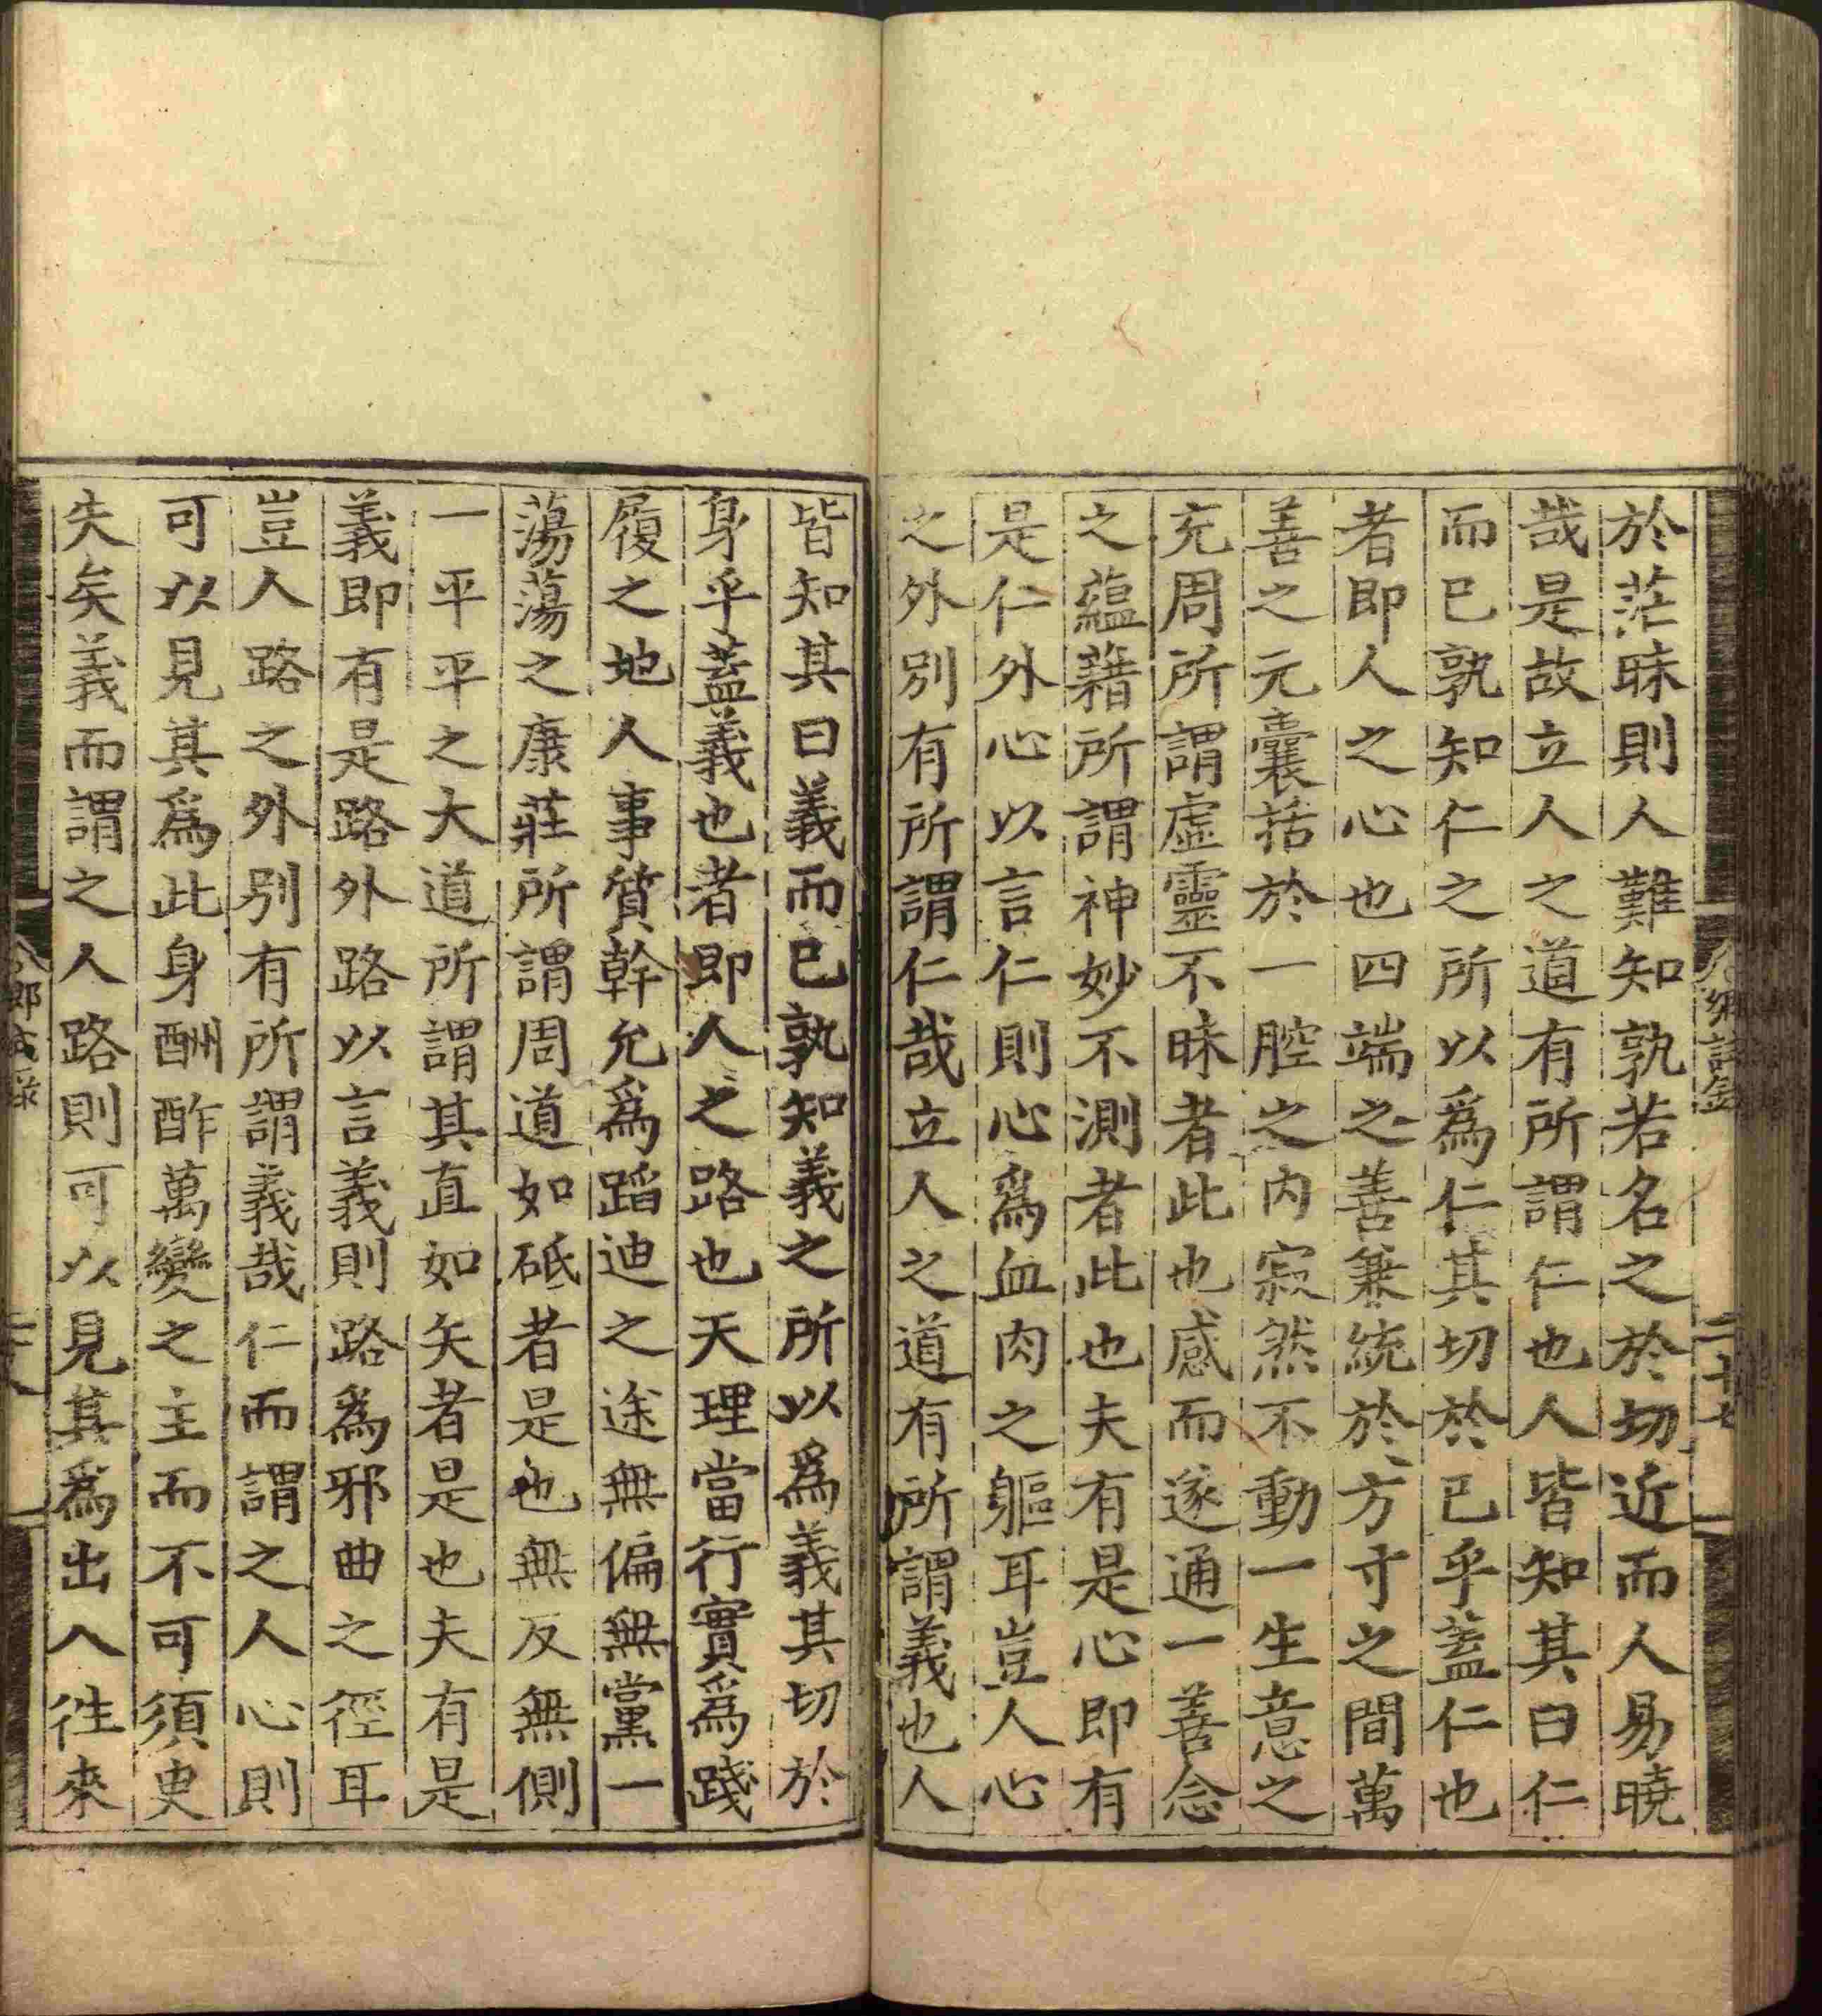 於茫昧則人難知孰若名之於切近而人易曉
哉是故立人之道有所謂仁也人皆知其曰仁
而已孰知仁之所以爲仁其切於已乎蓋仁也
者即人之心也四端之善兼統於方寸之間萬
善之元囊括於一腔之内寂然不動一生意之
充周所謂虛靈不昧者此也感而遂通一善念
之蘊藉所謂神妙不測者此也夫有是心即有
是仁外心以言仁則心爲血肉之軀耳豈人心
之外別有所謂仁哉立人之道有所謂義也人
二十七
皆知其曰義而已孰知義之所以爲義其切於
身乎蓋義也者即人之路也天理當行實爲踐
履之地人事質幹允爲蹈迪之途無偏無黨一
蕩蕩之康莊所謂周道如砥者是也無反無側
一平平之大道所謂其直如矢者是也夫有是
義即有是路外路以言義則路爲邪曲之徑耳
豈人路之外別有所謂義哉仁而謂之人心則
可以見其爲此身酬酢萬變之主而不可須臾
失矣義而謂之人路則可以見其爲出入徃來